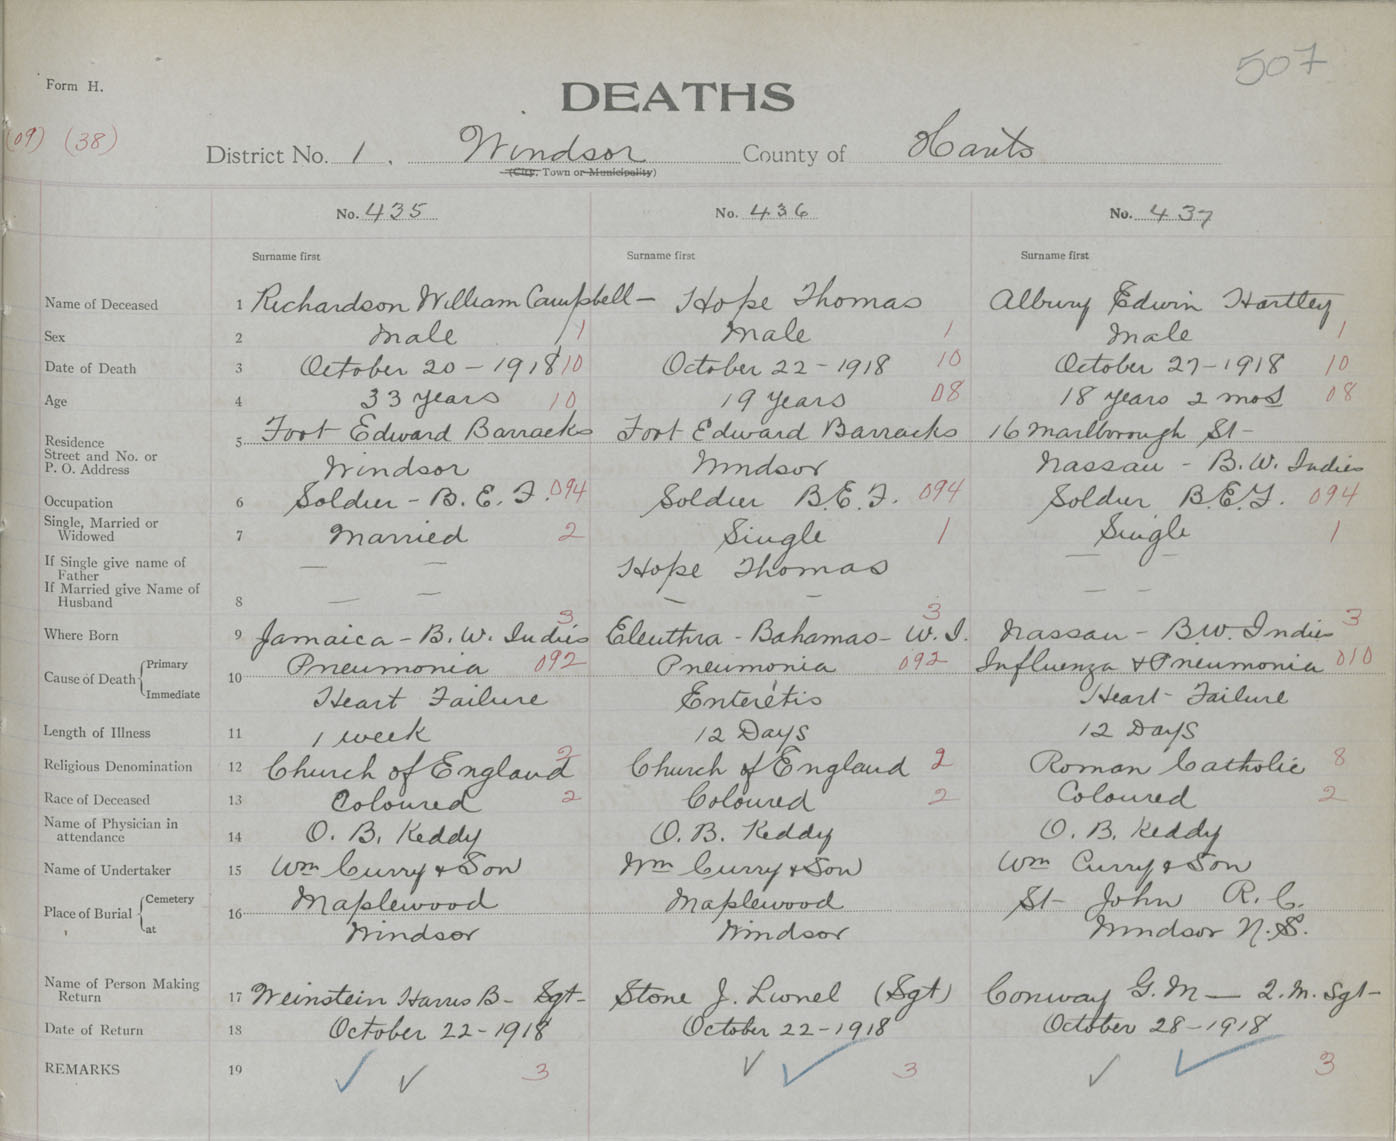 507
Form H.
DEATHS
(09) (38)
District No. 1. Windsor County of Hants
(City, Town or Municipality)
No. 435 No. 436 No. 437
Surname first Surname first Surname first
Name of Deceased 1 Richardson William Campbell — Hope Thomas Albury Edwin Hartley
Sex 2 Male 1 Male 1 Male 1
Date of Death 3 October 20 - 1918 10 October 22 - 1918 10 October 27 - 1918 10
Age 4 33 years 10 19 years 08 18 years 2 mos 08
Residence 5 Fort Edward Barracks Fort Edward Barracks 16 Marlborough St -
Street and No. or
P. O. Address Windsor Windsor Nassau - B. W. Indies
Occupation 6 Soldier - B. E. F. 094 Soldier B. E. F. 094 Soldier B.E.F. 094
Single, Married or
Widowed 7 Married 2 Single 1 Single 1
If Single give name of
Father — — Hope Thomas — —
If Married give Name of
Husband 8 — — — — — —
Where Born 9 Jamaica - B. W. Indies 3 Eleuthra - Bahamas - W. I. 3 Nassau - B.W. Indies 3
Cause of Death { Primary 10 Pneumonia 092 Pneumonia 092 Influenza & Pneumonia 010
Immediate Heart Failure Enteretis Heart - Failure
Length of Illness 11 1 week 12 Days 12 Days
Religious Denomination 12 Church of England 2 Church of England 2 Roman Catholic 8
Race of Deceased 13 Coloured 2 Coloured 2 Coloured 2
Name of Physician in
attendance 14 O. B. Keddy O. B. Keddy O. B. Keddy
Name of Undertaker 15 Wm Curry & Son Wm Curry & Son Wm Curry & Son
Place of Burial { Cemetery 16 Maplewood Maplewood St - John R. C.
at Windsor Windsor Windsor N. S.
Name of Person Making
Return 17 Weinstein Harris B - Sgt - Stone J. Lionel (Sgt) Conway G. M — Q. M. Sgt -
Date of Return 18 October 22 - 1918 October 22 - 1918 October 28 - 1918
REMARKS 19 ✓ ✓ 3 ✓ ✓ 3 ✓ ✓ 3